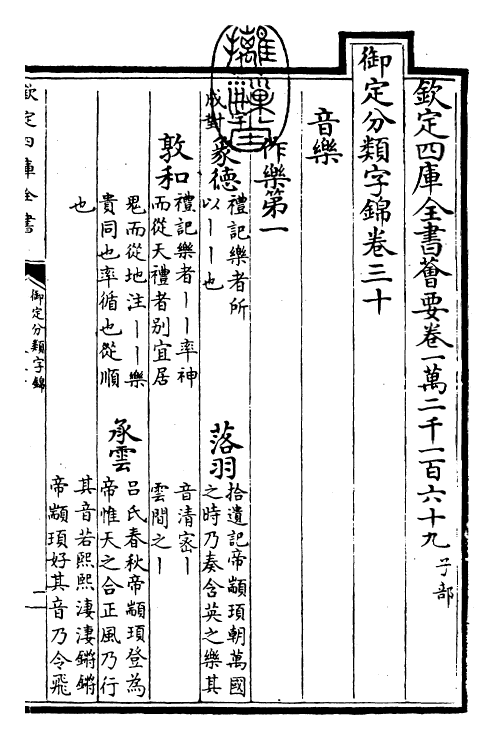 欽定四庫全書薈要卷一萬二千一百六十九 子部
御定分類字錦卷三十
音樂
作樂第一
成對
象德 禮記樂者所
以丨丨也
落羽 拾遺記帝顓頊朝萬國
之時乃奏含英之樂其
音清密丨
雲間之丨
敦和 禮記樂者丨丨率神
而從天禮者别宜居
鬼而從地注丨丨樂
貴同也率循也從順
也
承雲 吕氏春秋帝顓頊登為
帝惟天之合正風乃行
其音若熙熙淒淒鏘鏘
帝顓頊好其音乃令飛
欽定四庫全書
御定分類字錦